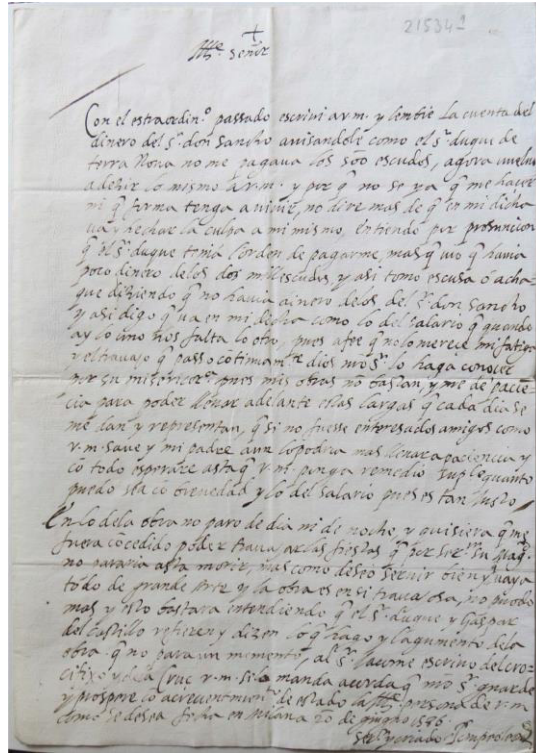 21534-1
+
Ille. Señor
Con el estraordin.º passado escrivi a v.m. y lembie la cuenta del
dinero del s.r don sancho avisandole como el s.r duque de
terra Nova no me pagava los 500 escudos, agora vuelvo
a dezir lo mismo a v.m. y por q no se ya q me hacer
ni q forma tenga a vivir, no dire mas de q en mi dicha
va y hechar la culpa a mi mismo, entiendo por presuncion
q el s.r duque tenia l'orden de pagarme, mas q vio q havia
poco dinero de los dos mill escudos, y asi tomo escusa o acha-
que diziendo q no havia dinero de los del s.r don sancho
y asi digo q va en mi dicha como lo del salario q quando
ay lo uno nos falta lo otro, pues a fee q no lo merece mi fatiga
y el travajo q passo cotinuam.te dios nro s.r lo haga conocer
por su misericor.a pues mis obras no bastan, y me de pacie-
cia para poder llevar adelante estas largas q cada dia se
me dan y representan, q si no fuesse enteresados amigos como
v.m. save y mi padre aun lo podria mas llevar a paciencia y
co todo esperare asta q v.m. ponga remedio suplº quanto
puedo sea co brevedad y lo del salario pues es tan justo
En lo de la obra no paro de dia ni de noche, y quisiera q me
fuera cocedido poder travajar las fiestas q por servir su mag.d
no pararia asta morir, mas como deseo servir bien y vaya
todo de grande arte y la obra es en si travajosa, no puedo
mas y esto bastara entendiendo q el s.r duque y Gaspar
del castillo refieren y dizen lo q hago y l'agumento de la
obra q no para un momento, al s.r Jacome escrivo del cro-
cifixo y de la Cruc v.m. se la manda acorda q nro s.r guarde
y prospere co acrecentamien.to de estado la Ille. persona de v.m
como se desea fecha en milana 20 de giugno 1586
ser.or y criado Pompeo Leoni